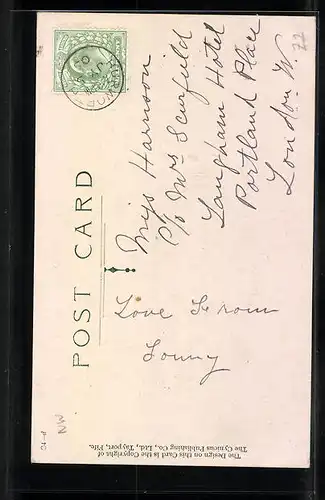 POST CARD
Miss Harrison
c/o Mrs Scurfield
Langham Hotel
Portland Place
London. W.
Love From
Tonny
The Design on this Card is the Copyright of
The Cynicus Publishing Co., Ltd., Tayport, Fife.
NW
22